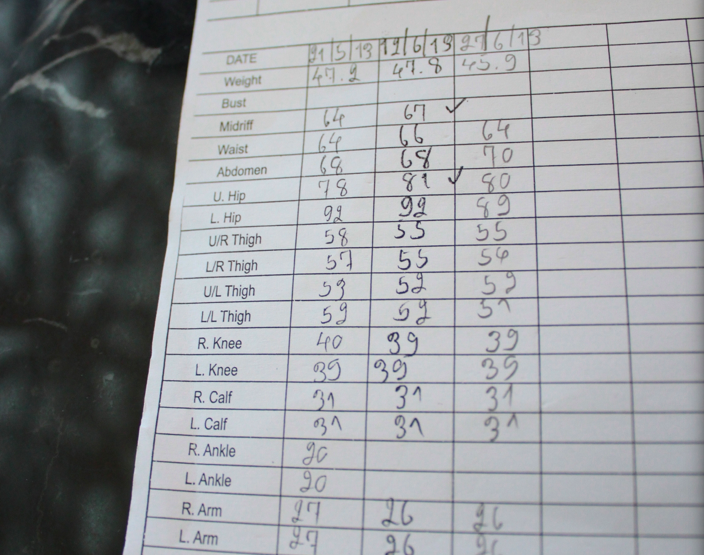 DATE 21/5/13 12/6/13 27/6/13
Weight 47.2 47.8 45.9
Bust
Midriff 64 67 ✓
Waist 64 66 64
Abdomen 68 68 70
U. Hip 78 81 ✓ 80
L. Hip 92 92 89
U/R Thigh 58 55 55
L/R Thigh 57 55 54
U/L Thigh 53 52 52
L/L Thigh 52 52 51
R. Knee 40 39 39
L. Knee 39 39 39
R. Calf 31 31 31
L. Calf 31 31 31
R. Ankle 20
L. Ankle 20
R. Arm 27 26 26
L. Arm 27 26